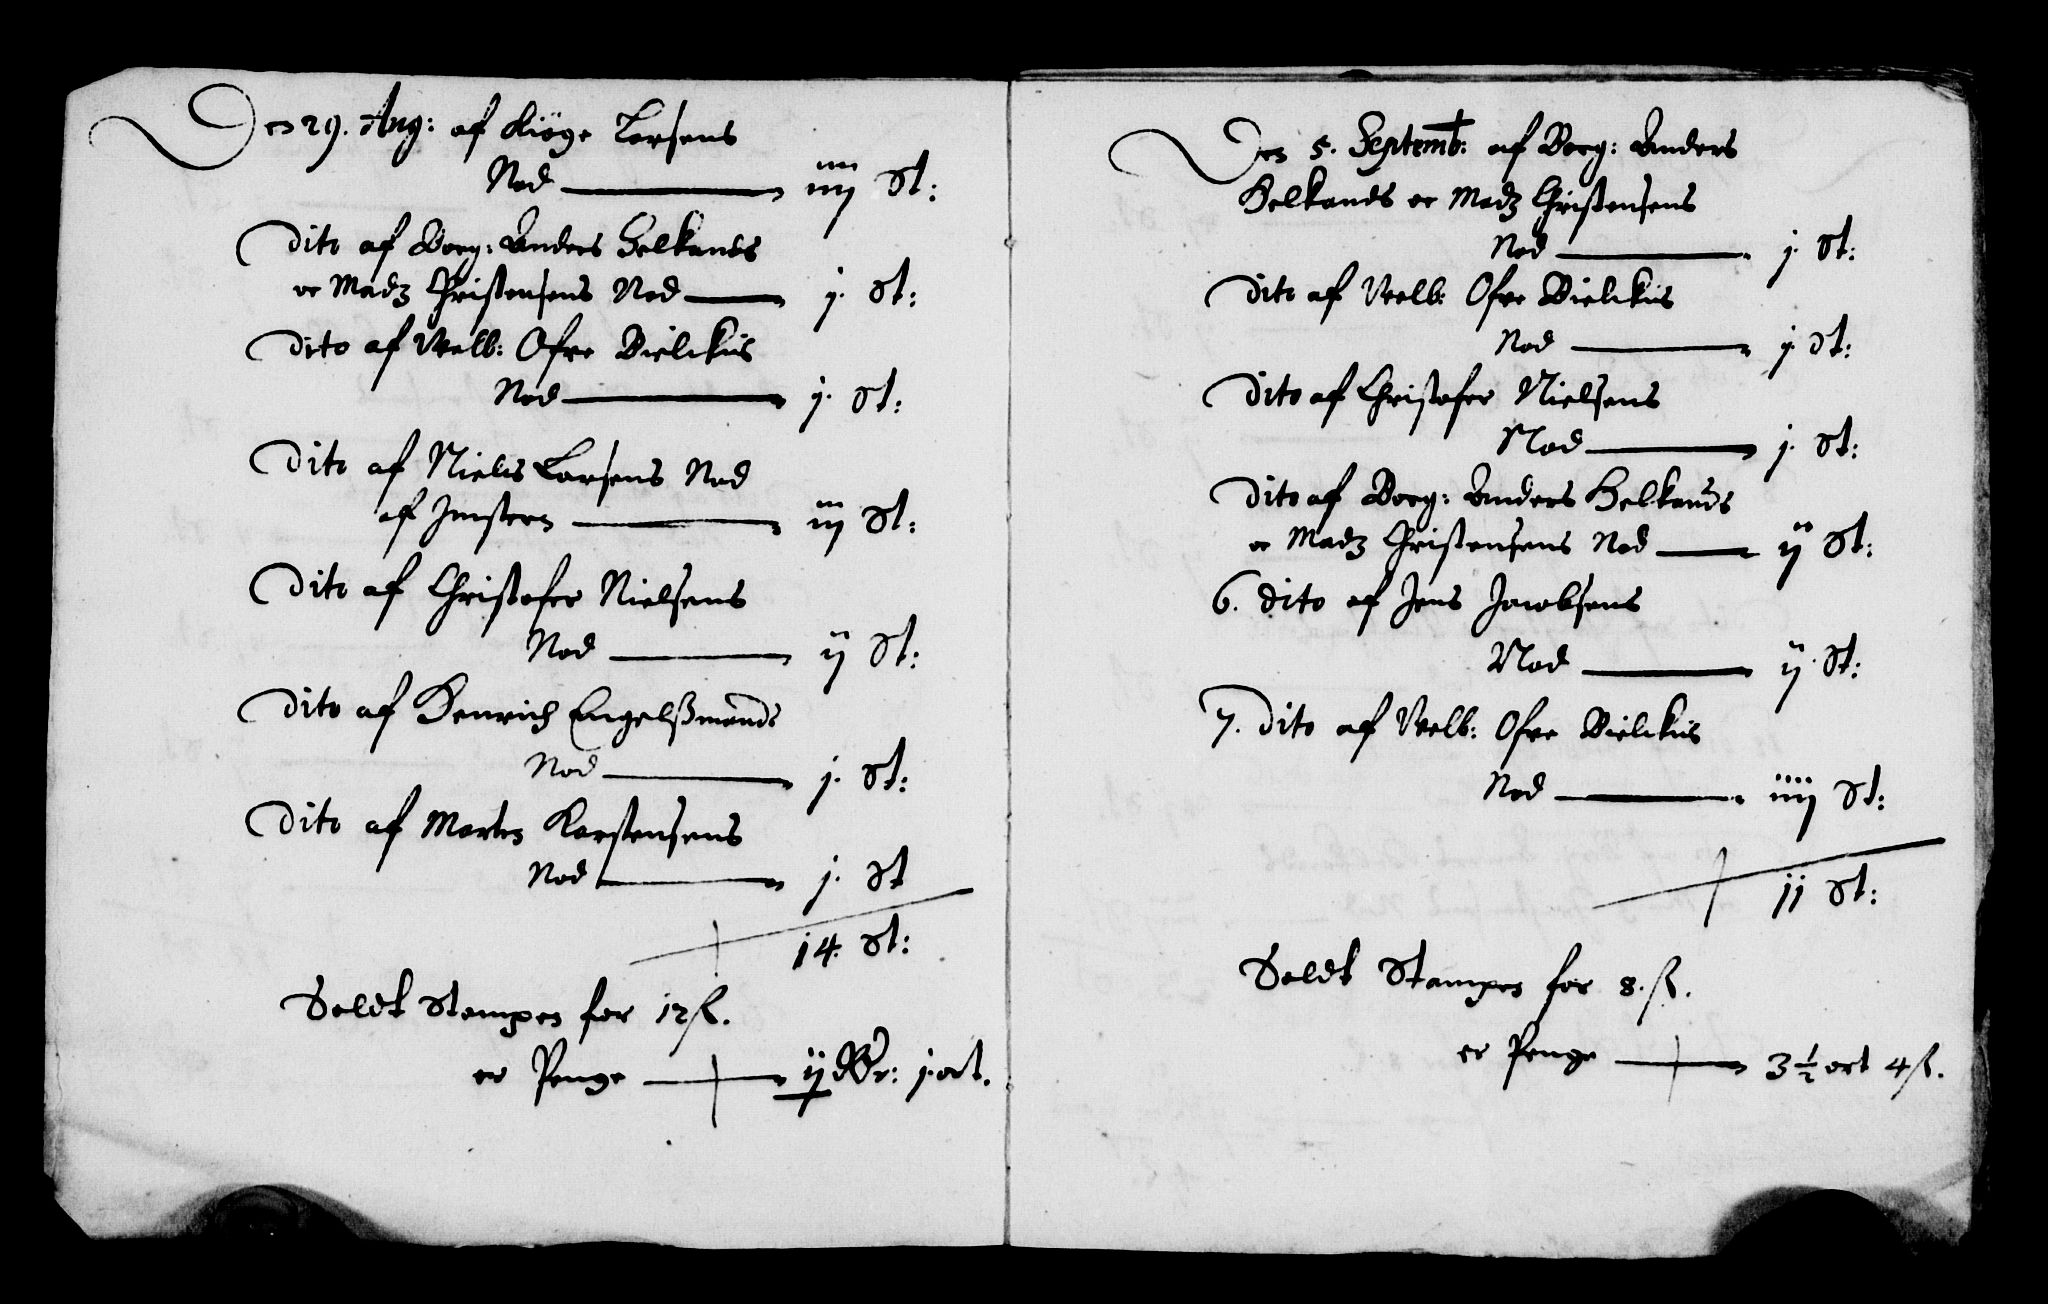 Den 29. Aug: af Kiøge Larsens
Nod iiiij St:
Dito af Borg: Anders Helkands
oc Madz Christensens Nod j. St:
Dito af Velb: Ofve Bielckis
Nod j. St:
Dito af Niels Larsens Nod
af iij St:
Dito af Christofer Nielsens
Nod ij St:
Dito af Henrich Engelßmands
Nod j. St:
Dito af Morten Karstensens
Nod j. St
14. St:
Soldt Stampen for 12 ß.
er Penge ij RDr: j. ort.
Den 5. Septemb: af Borg: Anders
Helkands oc Madz Christensens
Nod j. St:
Dito af Velb: Ofve Bielckis
Nod j. St:
Dito af Christofer Nielsens
Nod j. St:
Dito af Borg: Anders Helkands
oc Madz Christensens Nod ij St:
6. Dito af Jens Jacobsens
Nod ij. St:
7. Dito af Velb: Ofve Bielckis
Nod iiij St:
11 St:
Soldt Stampen for 8. ß.
er Penge 3 1/2 ort 4 ß.